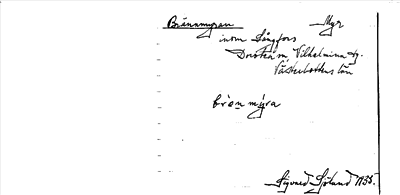 Brännmyran Myr
inom Långfors
Dorotea sn, Vilhelmina tg.
Västerbottens län
brän mýra
Sigvard Sjölund 1935.